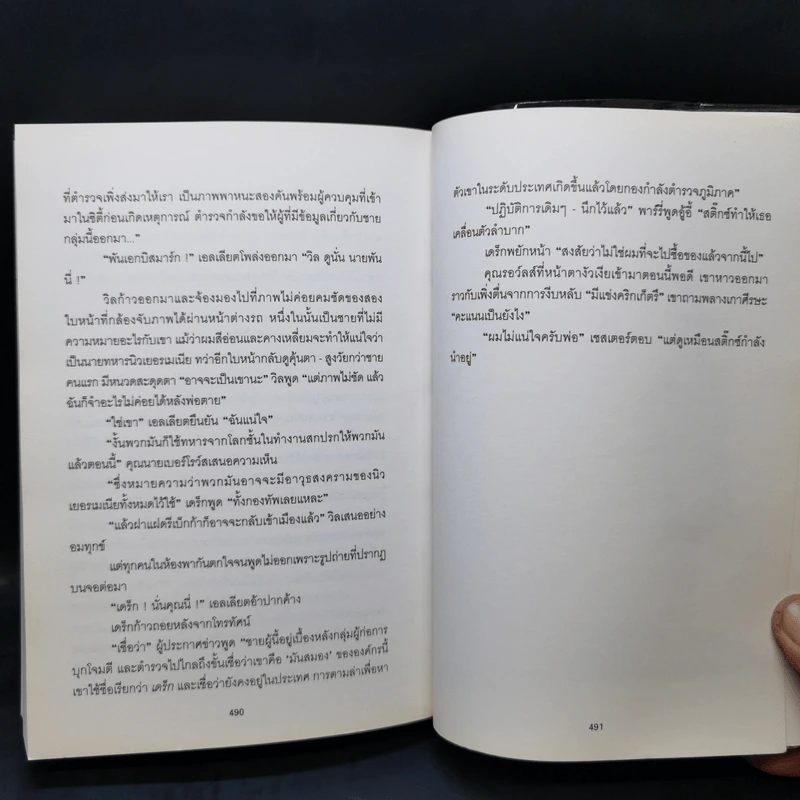 ที่ตำรวจเพิ่งส่งมาให้เรา เป็นภาพพาหนะสองคันพร้อมผู้ควบคุมที่เข้า
มาในซิตี้ก่อนเกิดเหตุการณ์ ตำรวจกำลังขอให้ผู้ที่มีข้อมูลเกี่ยวกับชาย
กลุ่มนี้ออกมา...”
“พันเอกบิสมาร์ก !” เอลเลียตโพล่งออกมา “วิล ดูนั่น นายพัน
นี่ !”
วิลก้าวออกมาและจ้องมองไปที่ภาพไม่ค่อยคมชัดของสอง
ใบหน้าที่กล้องจับภาพได้ผ่านหน้าต่างรถ หนึ่งในนั้นเป็นชายที่ไม่มี
ความหมายอะไรกับเขา แม้ว่าผมสีอ่อนและคางเหลี่ยมจะทำให้แน่ใจว่า
เป็นนายทหารนิวเยอรมเนีย ทว่าอีกใบหน้ากลับดูคุ้นตา - สูงวัยกว่าชาย
คนแรก มีหนวดสะดุดตา “อาจจะเป็นเขานะ” วิลพูด “แต่ภาพไม่ชัด แล้ว
ฉันก็จำอะไรไม่ค่อยได้หลังพ่อตาย”
“ใช่เขา” เอลเลียตยืนยัน “ฉันแน่ใจ”
“งั้นพวกมันก็ใช้ทหารจากโลกชั้นในทำงานสกปรกให้พวกมัน
แล้วตอนนี้” คุณนายเบอร์โรว์สเสนอความเห็น
“ซึ่งหมายความว่าพวกมันอาจจะมีอาวุธสงครามของนิว
เยอรมเนียทั้งหมดไว้ใช้” เดร็กพูด “ทั้งกองทัพเลยแหละ”
“แล้วฝาแฝดรีเบ็กก้าก็อาจจะกลับเข้าเมืองแล้ว” วิลเสนออย่าง
อมทุกข์
แต่ทุกคนในห้องพากันตกใจจนพูดไม่ออกเพราะรูปถ่ายที่ปรากฏ
บนจอต่อมา
“เดร็ก ! นั่นคุณนี่ !” เอลเลียตอ้าปากค้าง
เดร็กก้าวถอยหลังจากโทรทัศน์
“เชื่อว่า” ผู้ประกาศข่าวพูด “ชายผู้นี้อยู่เบื้องหลังกลุ่มผู้ก่อการ
บุกโจมตี และตำรวจไปไกลถึงขั้นเชื่อว่าเขาคือ ‘มันสมอง’ ขององค์กรนี้
เขาใช้ชื่อเรียกว่า เดร็ก และเชื่อว่ายังคงอยู่ในประเทศ การตามล่าเพื่อหา
490
ตัวเขาในระดับประเทศเกิดขึ้นแล้วโดยกองกำลังตำรวจภูมิภาค”
“ปฏิบัติการเดิมๆ - นึกไว้แล้ว” พาร์รี่พูดอู้อี้ “สติ๊กซ์ทำให้เธอ
เคลื่อนตัวลำบาก”
เดร็กพยักหน้า “สงสัยว่าไม่ใช่ผมที่จะไปซื้อของแล้วจากนี้ไป”
คุณรอว์ลส์ที่หน้าตางัวเงียเข้ามาตอนนี้พอดี เขาหาวออกมา
ราวกับเพิ่งตื่นจากการงีบหลับ “มีแข่งคริกเก็ตรึ” เขาถามพลางเกาศีรษะ
“คะแนนเป็นยังไง”
“ผมไม่แน่ใจครับพ่อ” เชสเตอร์ตอบ “แต่ดูเหมือนสติ๊กซ์กำลัง
นำอยู่”
491